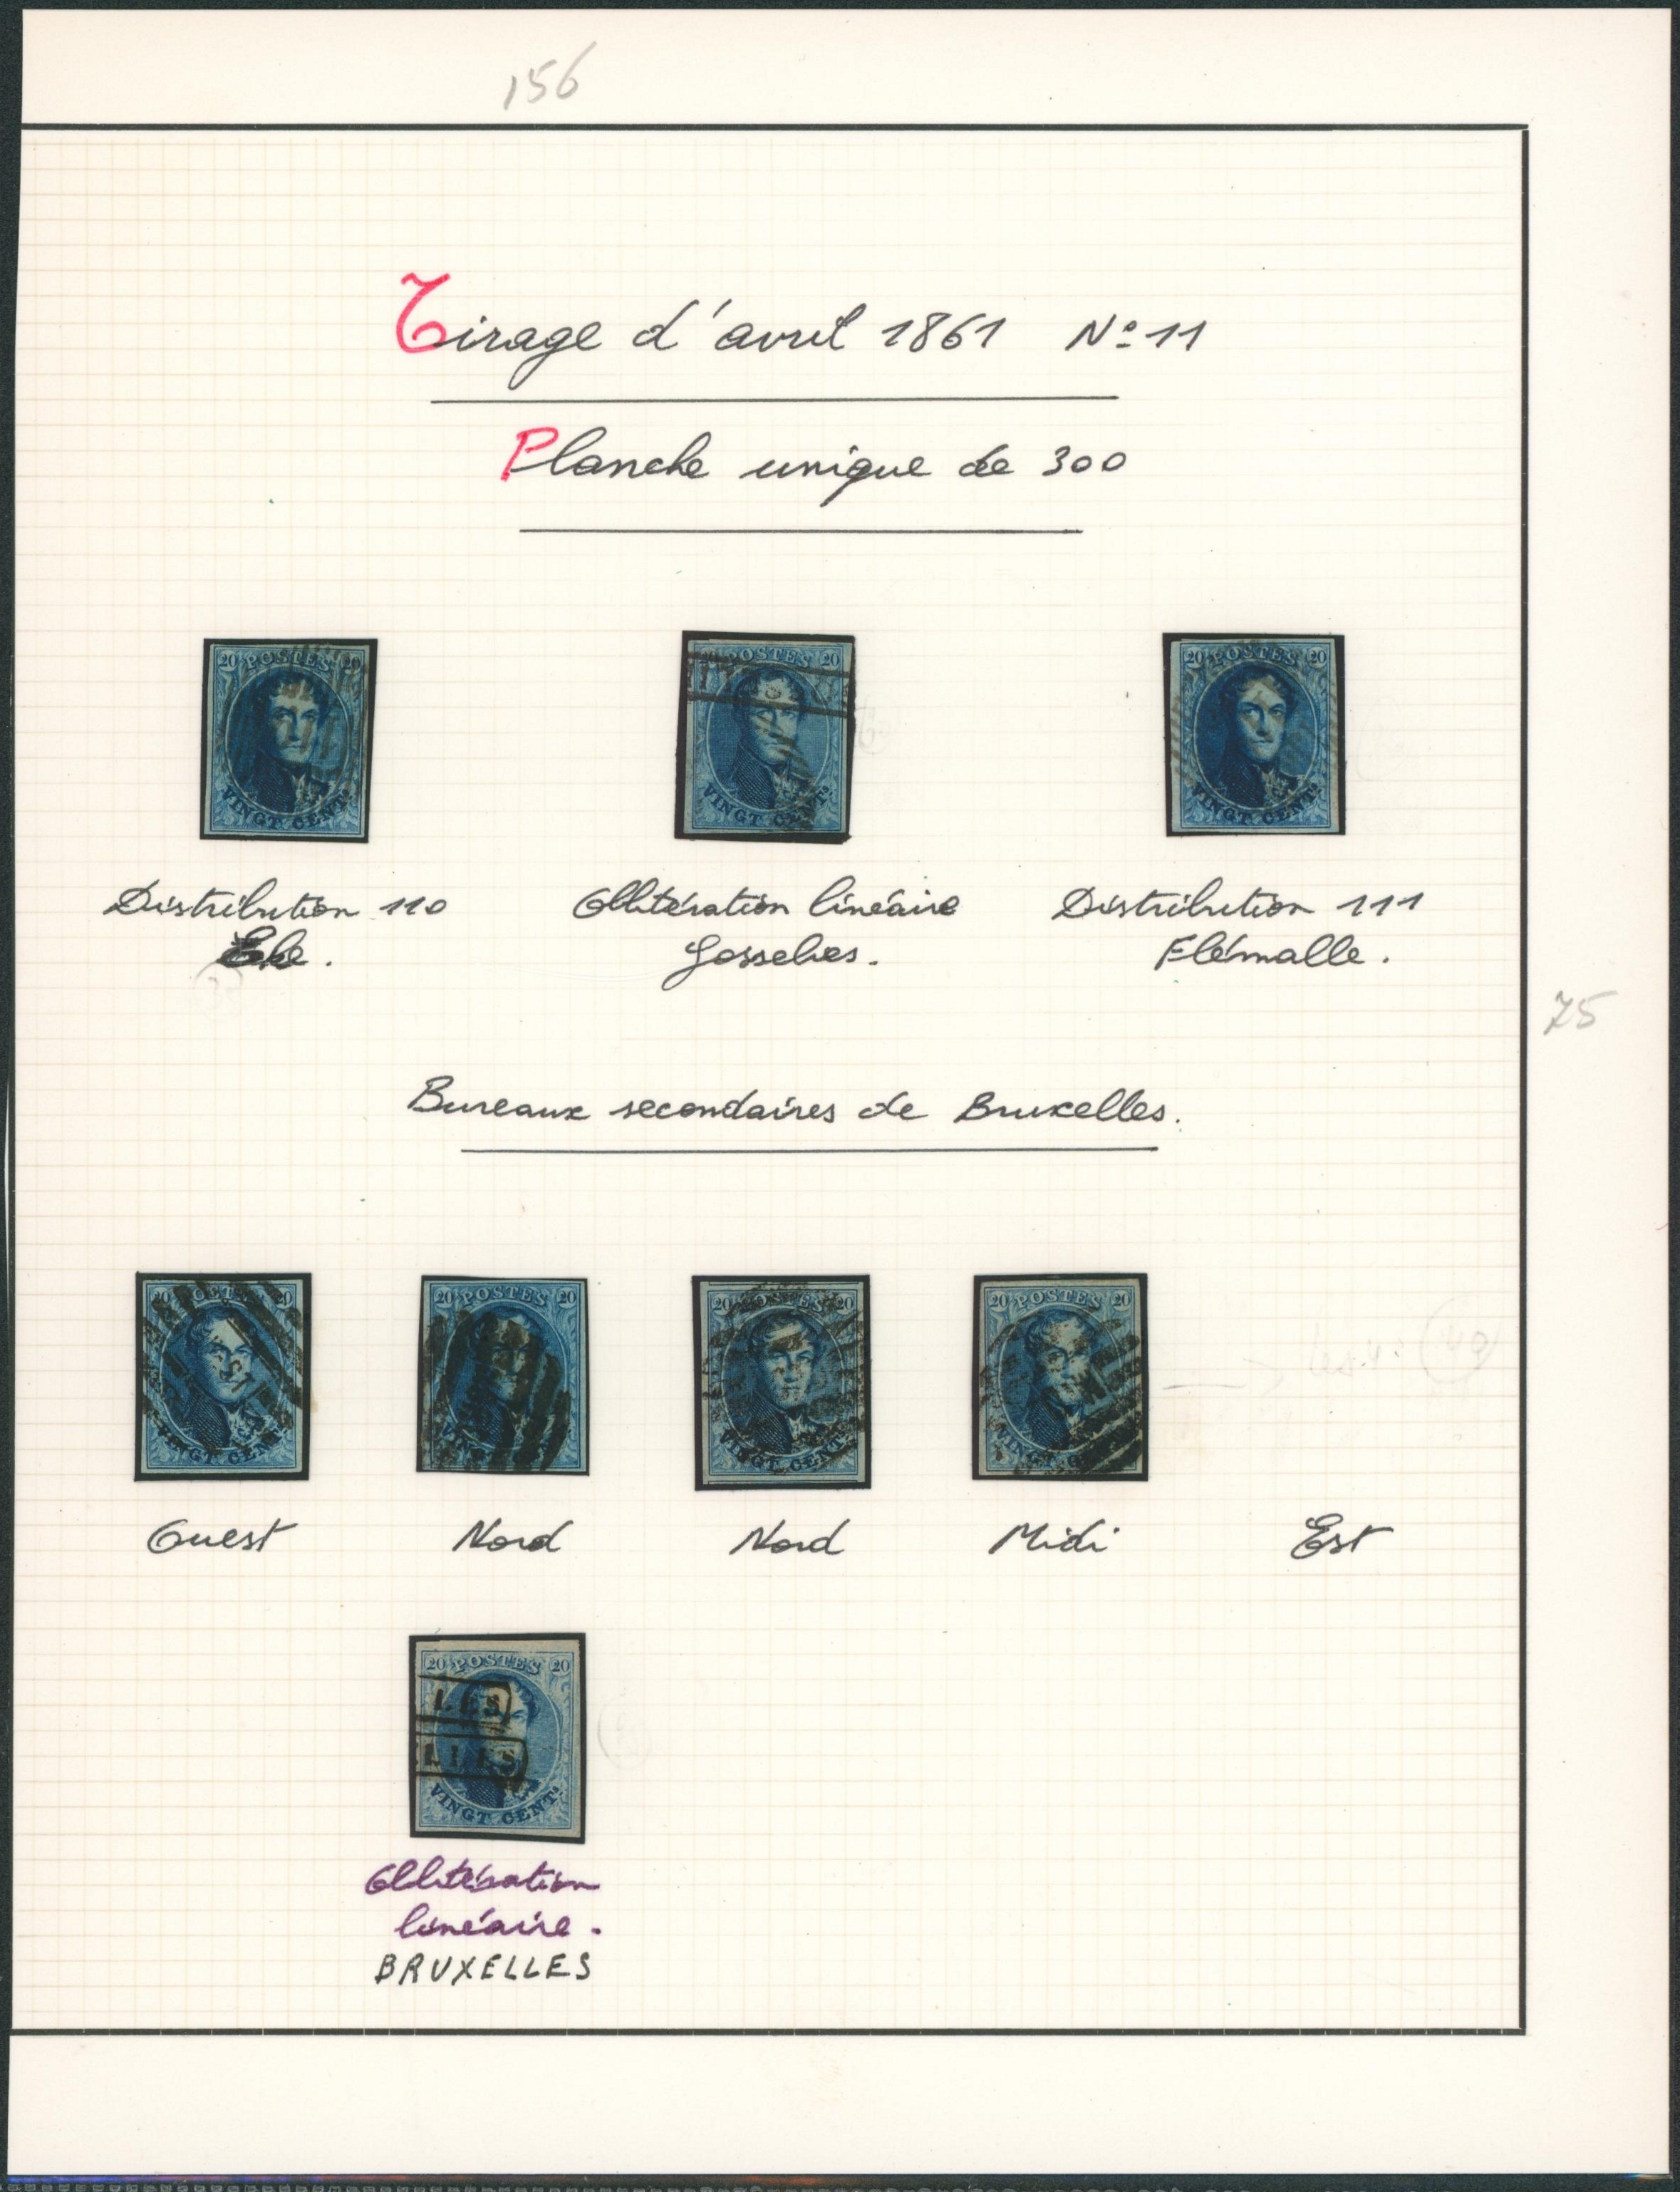 156
Tirage d'avril 1861 No 11
Planche unique de 300
20 POSTES 20
VINGT CENTS
POSTES 20
VINGT CENTS
20 POSTES 20
VINGT CENTS
Distribution 110
Oblitération linéaire
Distribution 111
Eke.
Gosselies.
Flémalle.
75
Bureaux secondaires de Bruxelles.
20 POSTES 20
VINGT CENTS
20 POSTES 20
20 POSTES 20
VINGT CENTS
20 POSTES 20
VINGT
Ouest
Nord
Nord
Midi
Est
20 POSTES 20
LES
LLES
VINGT CENTS
Oblitération
linéaire.
BRUXELLES